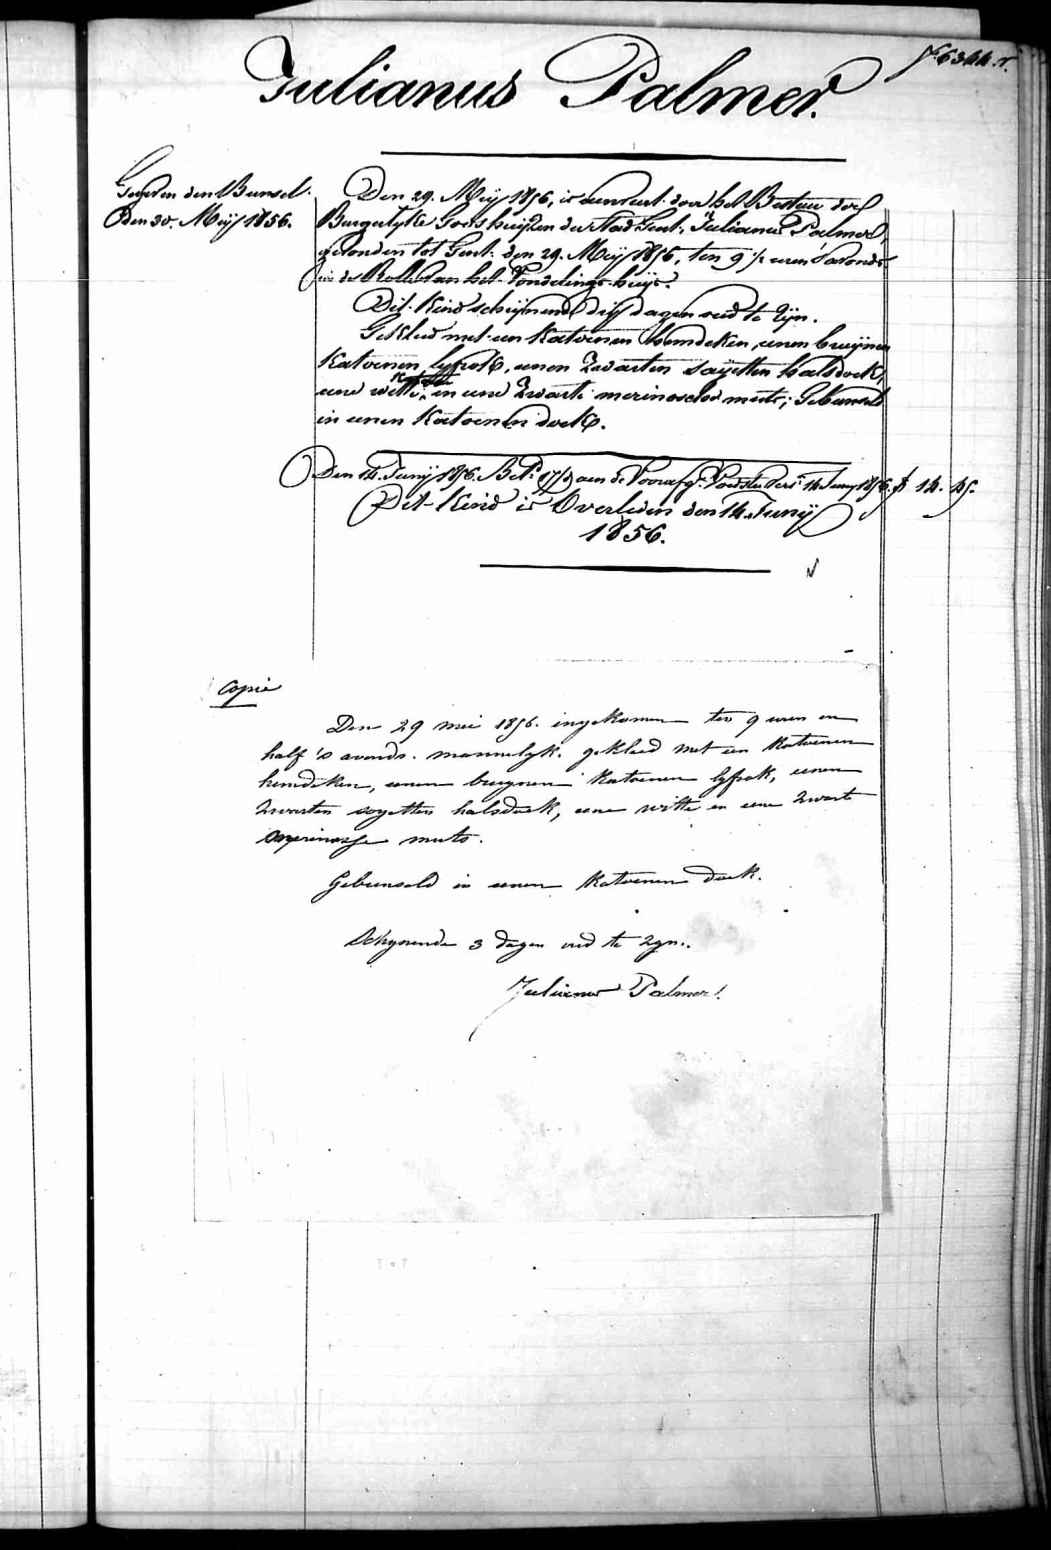 Julianus Palmer.
Gegeven den Bunsel.
Den 30. Meÿ 1856.
Den 29. Meÿ 1856, is aenveert door het Bestuer der
Burgerlyke Godshuijzen der Stad Gent, Julianus Palmer,
gevonden tot Gent, den 29. Meÿ 1856, ten 9 ½ uren 's avonds
in de Rolle van het Vondelings-huijs.
Dit Kind scheijnende drij dagen oud te zijn.
Gekleed met een Katoenen hemdeken, eenen bruijnen
Katoenen lyfrok, eenen Zwarten saijetten halsdoek,
eene witte, en eene Zwarte merinossche muts; Gebunseld
in eenen Katoenen doek.
Den 14. Junij 1856. aen de Voorsch. 14 Junij 1856. 14. 45.
Dit Kind is Overleden den 14. Junij
1856.
Copie
Den 29 mei 1856. ingekomen ten 9 uren en
half 's avonds. mannelyk. gekleed met een Katoenen
hemdeken, eenen bruynen Katoenen lyfrok, eenen
Zwarten sayetten halsdoek, eene witte en eene Zwarte
merinosse muts.
Gebunseld in eenen Katoenen doek.
Schynende 3 dagen oud te zyn.
Julianus Palmer.